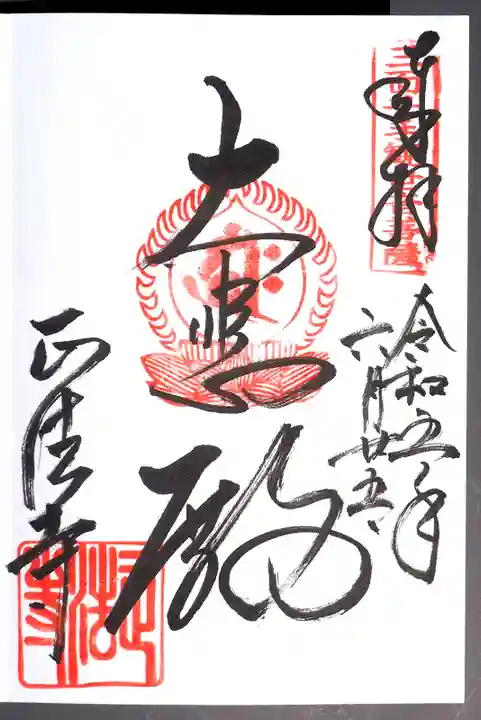 奉拝
令和五年
六月廿五日
大悲殿
正法寺